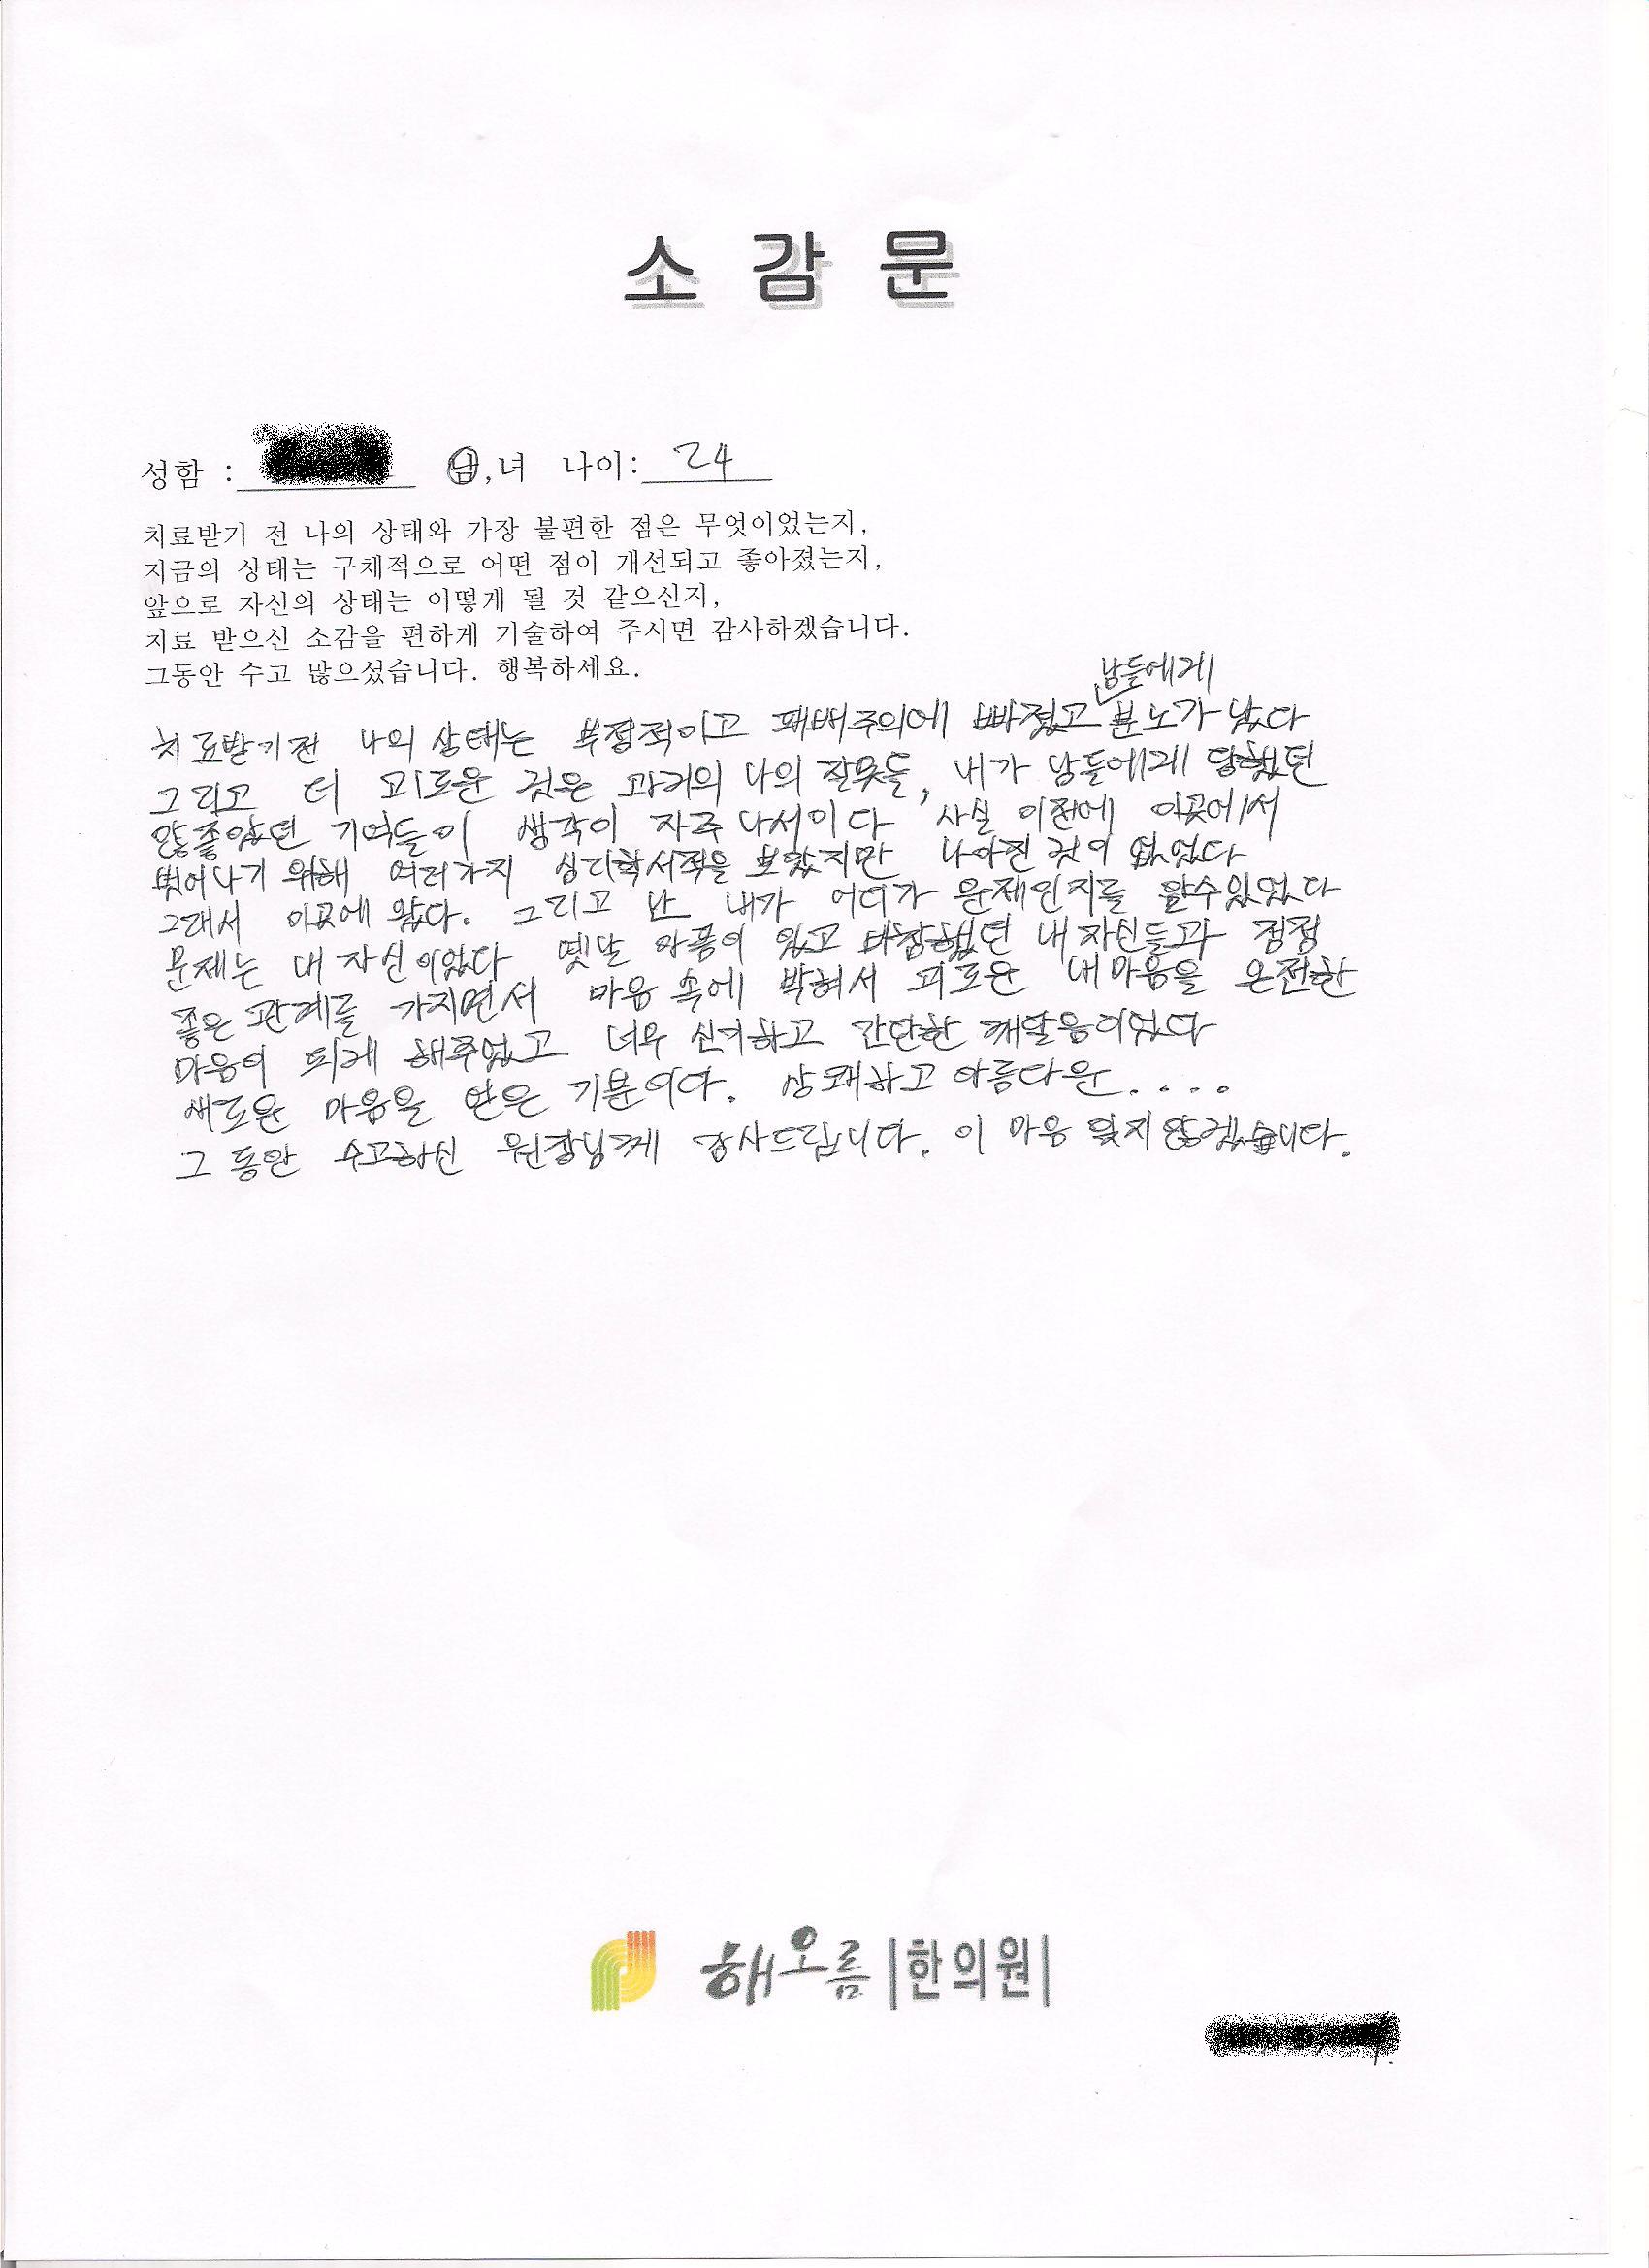 소 감 문
성함 : 남,녀 나이: 24
치료받기 전 나의 상태와 가장 불편한 점은 무엇이었는지,
지금의 상태는 구체적으로 어떤 점이 개선되고 좋아졌는지,
앞으로 자신의 상태는 어떻게 될 것 같으신지,
치료 받으신 소감을 편하게 기술하여 주시면 감사하겠습니다.
그동안 수고 많으셨습니다. 행복하세요.
남들에게
치료받기전 나의 상태는 부정적이고 패배주의에 빠졌고 분노가 났다
그리고 더 괴로운 것은 과거의 나의 잘못들, 내가 남들에게 당했던
않좋았던 기억들이 생각이 자주 나서이다 사실 이전에 이곳에서
벗어나기 위해 여러가지 심리학서적을 보았지만 나아진 것이 없었다
그래서 이곳에 왔다. 그리고 난 내가 어디가 문제인지를 알수있었다
문제는 내 자신이었다 옛날 아픔이 있고 비참했던 내 자신들과 점점
좋은 관계를 가지면서 마음 속에 박혀서 괴로운 내마음을 온전한
마음이 되게 해주었고 너무 신기하고 간단한 깨달음이었다
새로운 마음을 얻은 기분이다. 상쾌하고 아름다운....
그 동안 수고하신 원장님께 감사드립니다. 이 마음 잊지 않겠습니다.
해오름 |한의원|